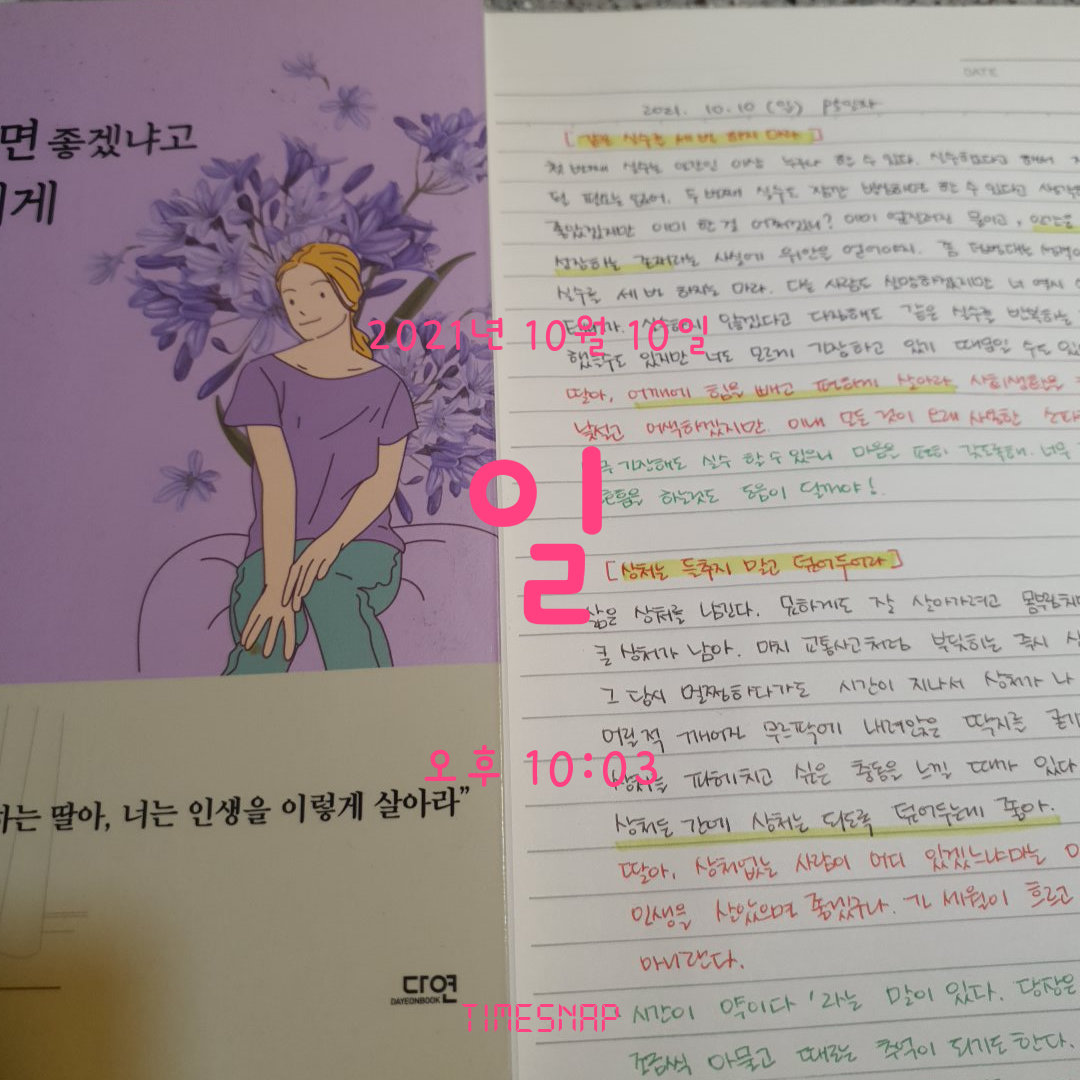 면 좋겠냐고
에게
하는 딸아, 너는 인생을 이렇게 살아라”
다연
DAYEONBOOK
2021년 10월 10일
일
오후 10:03
TIMESNAP
DATE
2021. 10. 10 (일)
[같은 실수를 세 번 하지 마라]
첫 번째 실수는 인간인 이상 누구나 할 수 있다. 실수했다고 해서
두 번째 실수도 잠깐 방심하면 할 수 있다고
이미 한 걸 어쩌겠니? 이미 엎질러진 물이고, 인간은
성장하는 존재라는 사실에 위안을 얻어야지.
실수를 세 번 하지는 마라. 다른 사람도 실망하겠지만 너 역시
않겠다고 다짐해도 같은 실수를 반복하는
했을수도 있지만 너도 모르게 긴장하고 있기 때문일 수도
딸아, 어깨에 힘을 빼고 편하게 살아라. 사회생활은
낯설고 어색하겠지만. 이내 모든 것이 오래 사용한
긴장해도 실수 할 수 있으니 마음을 편히 갖도록해. 너무
호흡을 하는것도 도움이 될꺼야!
[상처는 들추지 말고 덮어두어라]
삶은 상처를 남긴다. 묘하게도 잘 살아가려고
큰 상처가 남아. 마치 교통사고처럼 부딪히는 즉시
그 당시 멀쩡하다가도 시간이 지나서 상처가 나
어릴적 깨어진 무르팍에 내려앉은 딱지를
파헤치고 싶은 충동을 느낄 때가 있다
상처든 간에 상처는 되도록 덮어두는게 좋아.
딸아, 상처없는 사람이 어디 있겠느냐마는
인생을 살았으면 좋겠구나. 긴 세월이 흐르고
아니란다.
시간이 약이다 '라는 말이 있다. 당장은
조금씩 아물고 때로는 추억이 되기도 한다.